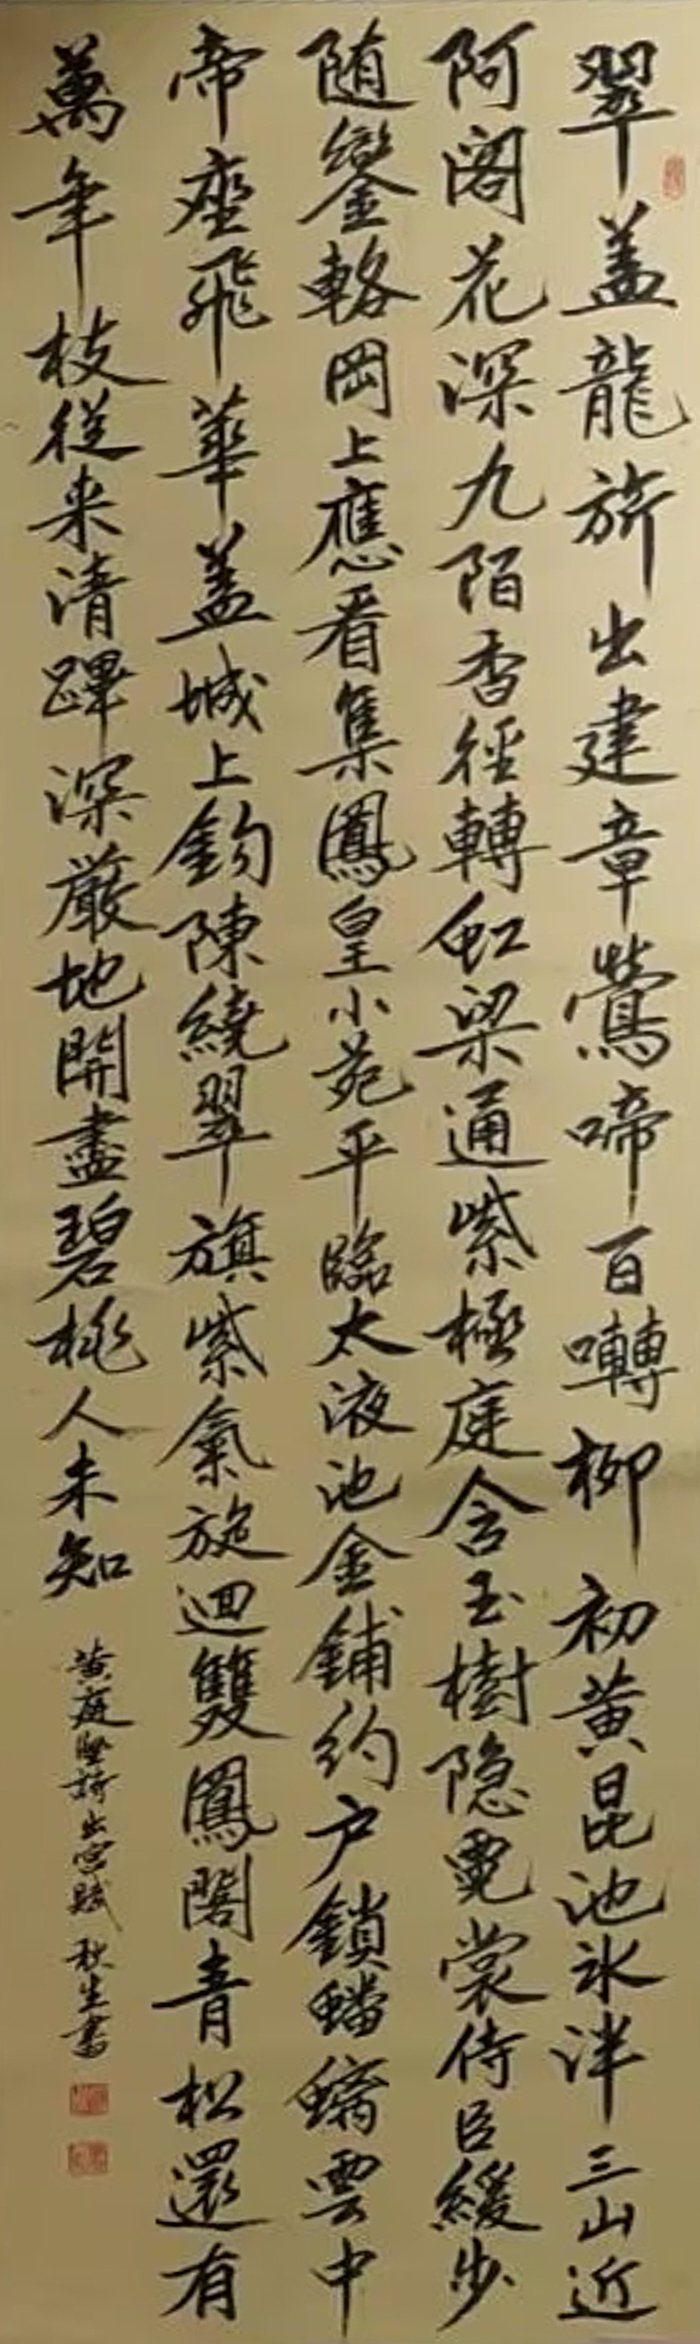 翠盖龍旂出建章鶯啼百囀柳初黄昆池氷泮三山近
阿阁花深九陌香径轉虹梁通紫極庭含玉樹隐霓裳侍臣緩步
随鑾輅岡上應看集鳳皇小苑平臨太液池金鋪约户鎖蟠螭雲中
帝座飛華盖城上鈎陳繞翠旗紫氣旋迴雙鳳闕青松還有
萬年枝從来清蹕深嚴地開盡碧桃人未知
黄庭堅
出宫賦 秋生書